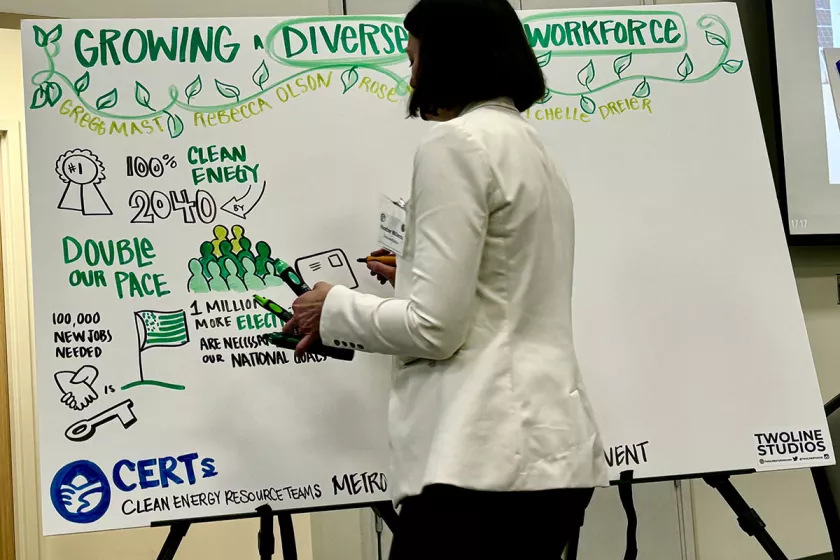 GROWING A DIVERSE WORKFORCE
GREGG MAST REBECCA OLSON ROSE CHELLE DREIER
#1
100% CLEAN ENEGY
2040 BY
DOUBLE
OUR PACE
100,000
NEW JOBS
NEEDED
IS
1 MILLION
MORE ELECT
ARE NECESSA
OUR NATIONAL GOALS
CERTs
CLEAN ENERGY RESOURCE TEAMS METRO VENT
TWOLINE
STUDIOS
17 17